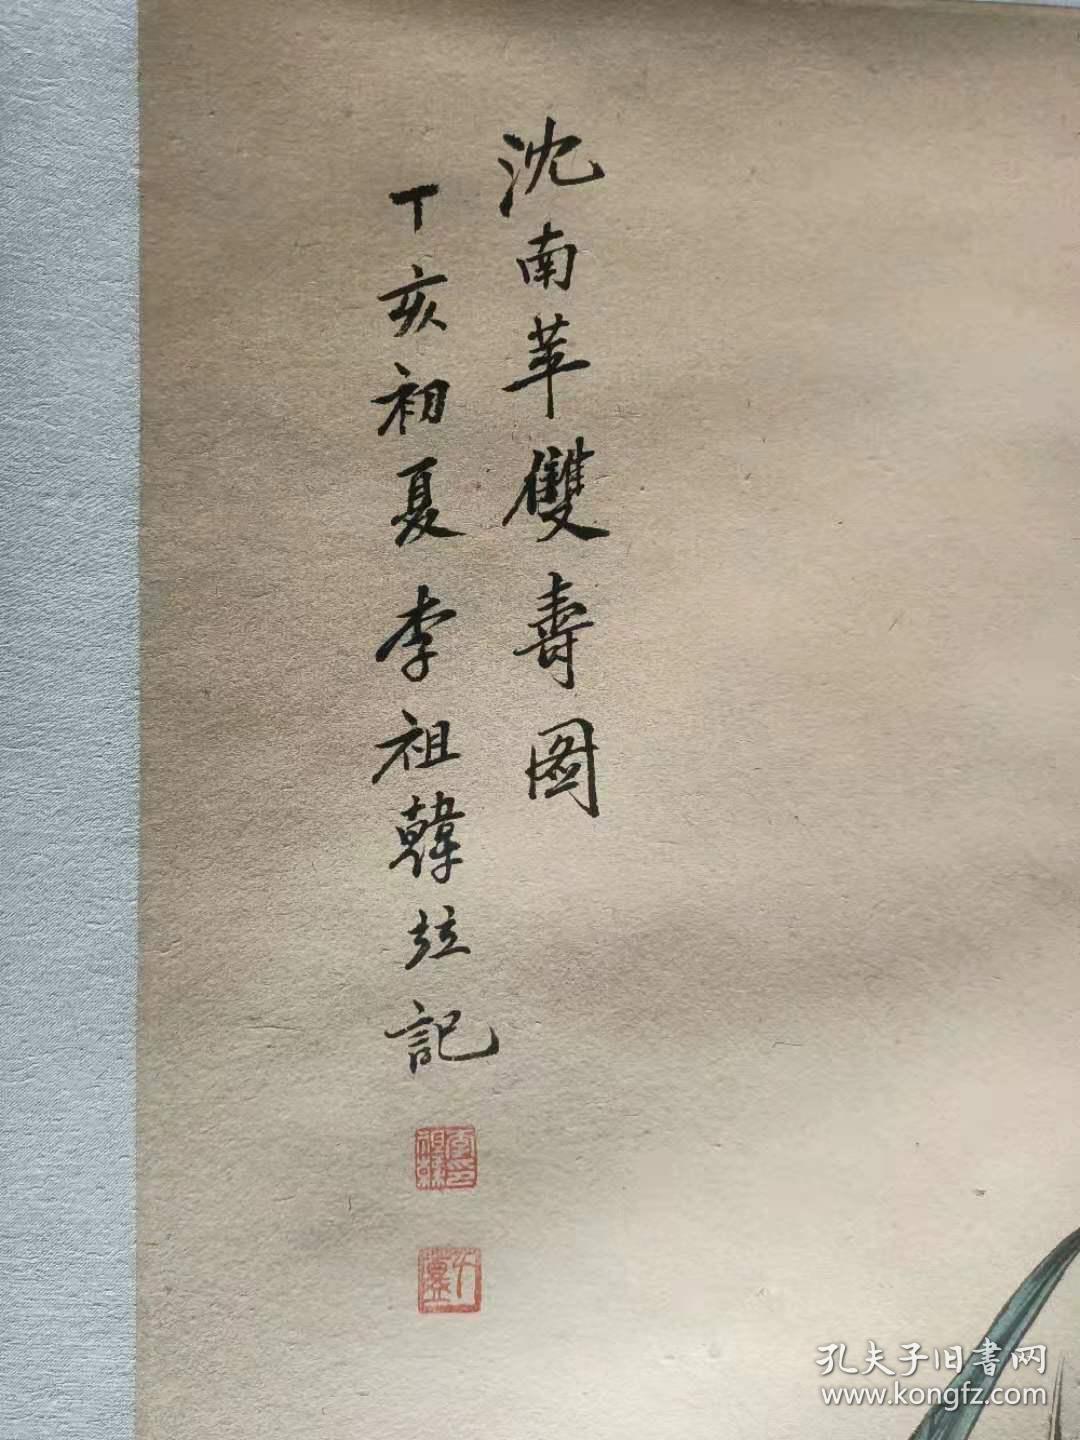 沈南苹雙壽圖
丁亥初夏李祖韓竝記
孔夫子旧書网
www.kongfz.com